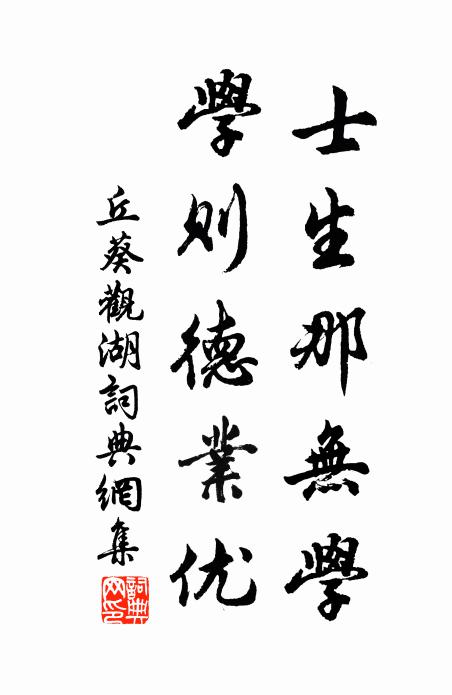 士生那無學
學则德業优
丘葵觀湖詞典網集
詞典網印